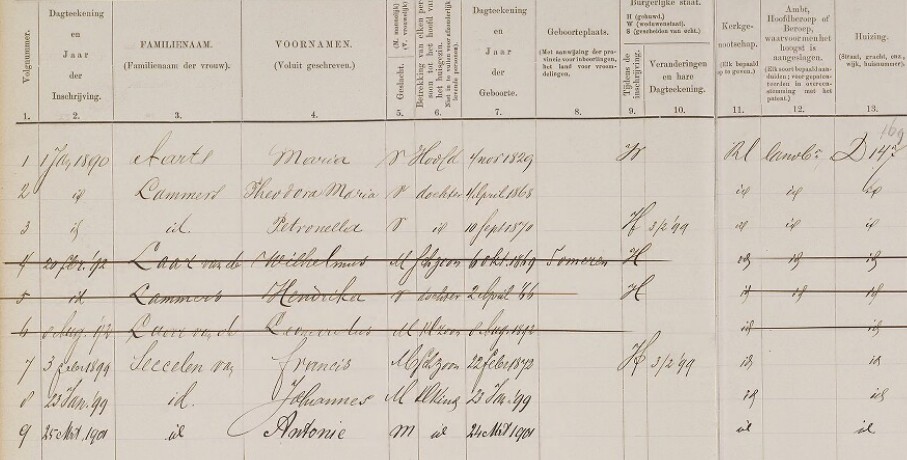 Volgnummer. Dagteekening en Jaar der Inschrijving. FAMILIENAAM. (Familienaam der vrouw). VOORNAMEN. (Voluit geschreven.) Geslacht. (M. mannelijk) (V. vrouwelijk) Betrekking van elken persoon tot het hoofd van het huisgezin. Dagteekening en Jaar der Geboorte. Geboorteplaats. (Met aanwijzing der provincie voor inboorlingen, het land voor vreemdelingen. Burgerlijke staat. H (gehuwd.) W (weduwenstaat). S (gescheiden van echt.) Tijdens de inschrijving. Veranderingen en hare Dagteekening. Kerkgenootschap. (Elk bepaald op te geven.) Ambt, Hoofdberoep of Beroep, waarvoor men het hoogst is aangeslagen. Huizing. (Straat, gracht, enz., wijk, huisnummer).
1. 2. 3. 4. 5. 6. 7. 8. 9. 10. 11. 12. 13.
169
1 1 Jan 1890 Aarts Maria V Hoofd 4 nov 1829 W RK landbr D 147
2 id Lammers Theodora Maria V dochter 4 April 1868 id id id
3 id id. Petronella V id 10 Sept 1870 H 3/2 '99 id id id
4 20 febr. '92 Laar van de Wilhelmus M zoon 6 okt. 1869 Someren H id id id
5 id Lammers Hendrika V dochter 2 April '66 H id id id
6 8 Aug. '92 Laar van de Leonardus M 8 Aug. 1892 id id
7 3 febr 1899 van Francis M zoon 22 febr 1872 H 3/2 '99 id id
8 23 Jan. '99 id. Johannes M kl kind 23 Jan. '99 id id
9 25 Mrt 1901 id Antonie M id 24 Mrt 1901 id id